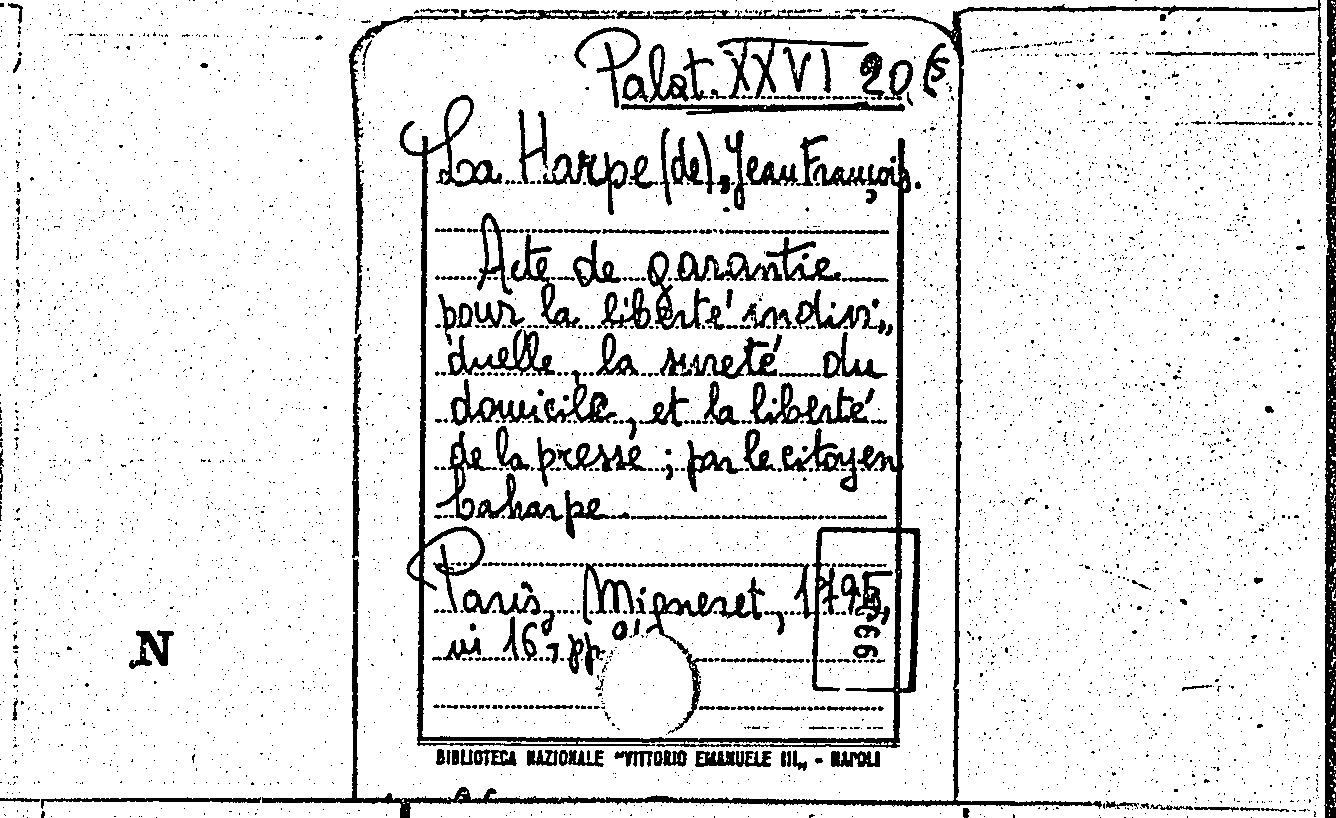 Palat. XXVI 20 (5
La Harpe (de), Jean François.
Acte de garantie
pour la liberté indivi„
duelle, la sureté du
domicile, et la liberté
de la presse ; par le citoyen
Laharpe.
Paris, Migneret, 1795,
in 16°, pp.
N
BIBLIOTECA NAZIONALE "VITTORIO EMANUELE III„ - NAPOLI